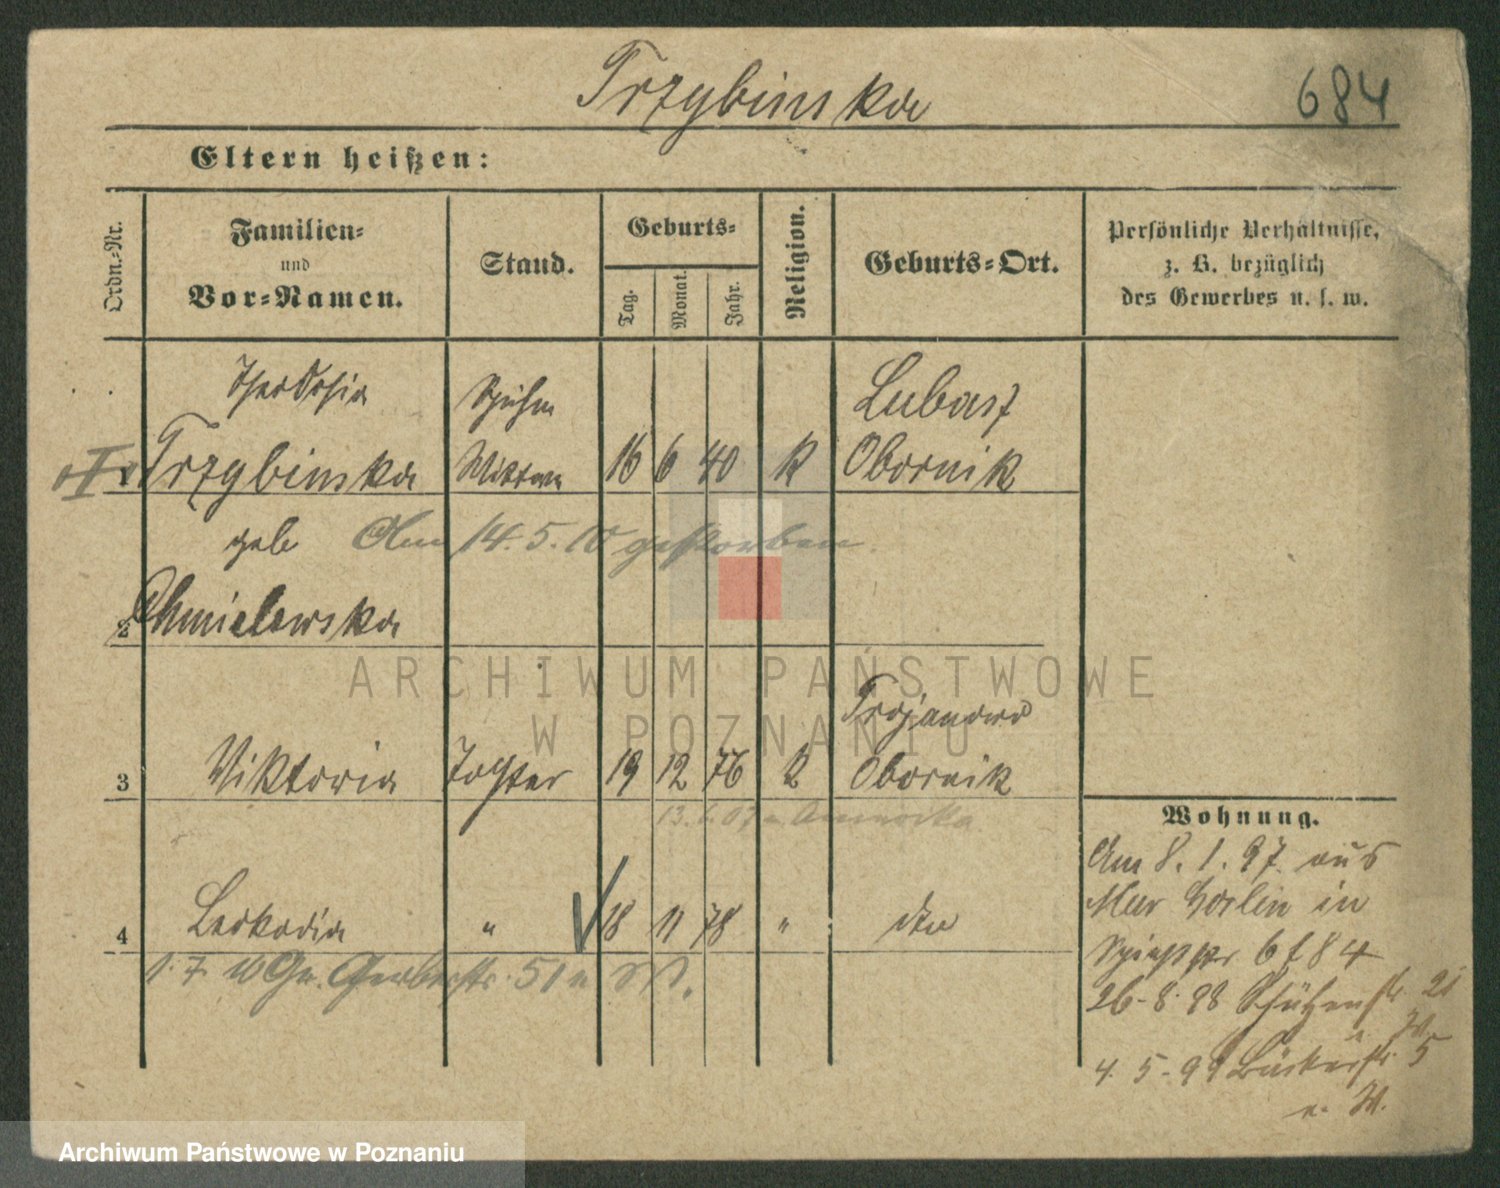 Trzybinska
684
Eltern heißen:
Ordn.-Nr.
Familien-
und
Vor-Namen.
Stand.
Geburts-
Tag.
Monat.
Jahr.
Religion.
Geburts-Ort.
Persönliche Verhältnisse,
z. B. bezüglich
des Gewerbes u. s. w.
Theodosia
Lubasz
Trzybinska Wittwe 16 6 40 K Obornik
geb Am 14.5.10 gestorben.
2 Chmielewska
Trojanowo
3 Viktoria Tochter 19 12 76 K Obornik
13. 6. 07 n. Amerika
Wohnung.
Am 8. 1. 97. aus
in
4 Leokadia " 18 11 78 " dto
6 f 84
1. 7. 10 Gr. Gerberstr. 51 n. W.
26.8.98 Schützenstr. 21
W.
4. 5. 99 Bäckerstr. 5
n. W.
ARCHIWUM PAŃSTWOWE
W POZNANIU
Archiwum Państwowe w Poznaniu